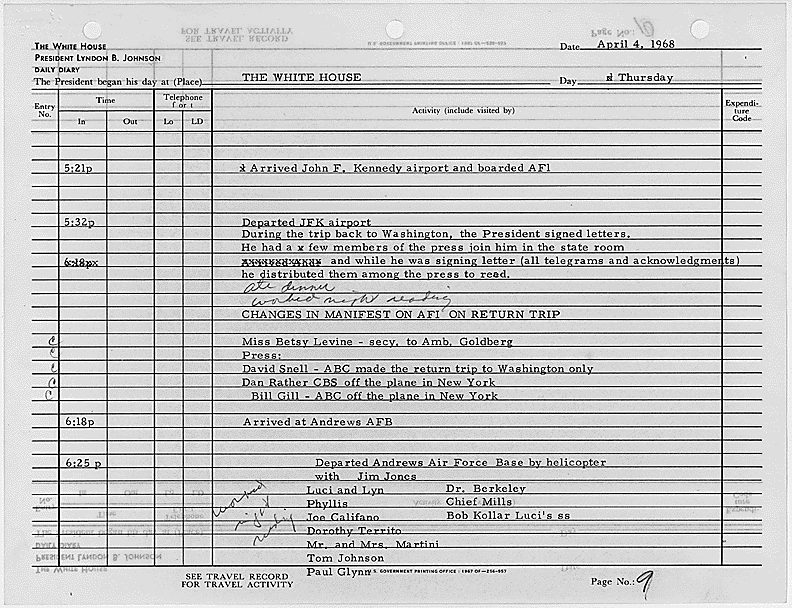 THE WHITE HOUSE
PRESIDENT LYNDON B. JOHNSON
DAILY DIARY
U.S. GOVERNMENT PRINTING OFFICE : 1967 OF—256-957
Date April 4, 1968
The President began his day at (Place) THE WHITE HOUSE Day Thursday
Entry No. Time Telephone f or t Activity (include visited by) Expendi-ture Code
In Out Lo LD
5:21p Arrived John F. Kennedy airport and boarded AF1
5:32p Departed JFK airport
During the trip back to Washington, the President signed letters.
He had a x few members of the press join him in the state room
6:18px and while he was signing letter (all telegrams and acknowledgments)
he distributed them among the press to read.
ate dinner
worked night reading
CHANGES IN MANIFEST ON AF1 ON RETURN TRIP
C Miss Betsy Levine - secy. to Amb. Goldberg
C Press:
C David Snell - ABC made the return trip to Washington only
C Dan Rather CBS off the plane in New York
C Bill Gill - ABC off the plane in New York
6:18p Arrived at Andrews AFB
6:25 p Departed Andrews Air Force Base by helicopter
with Jim Jones
worked night reading
Luci and Lyn Dr. Berkeley
Phyllis Chief Mills
Joe Califano Bob Kollar Luci's ss
Dorothy Territo
Mr. and Mrs. Martini
Tom Johnson
Paul Glynn
U.S. GOVERNMENT PRINTING OFFICE : 1967 OF—256-957
SEE TRAVEL RECORD
FOR TRAVEL ACTIVITY
Page No.: 9